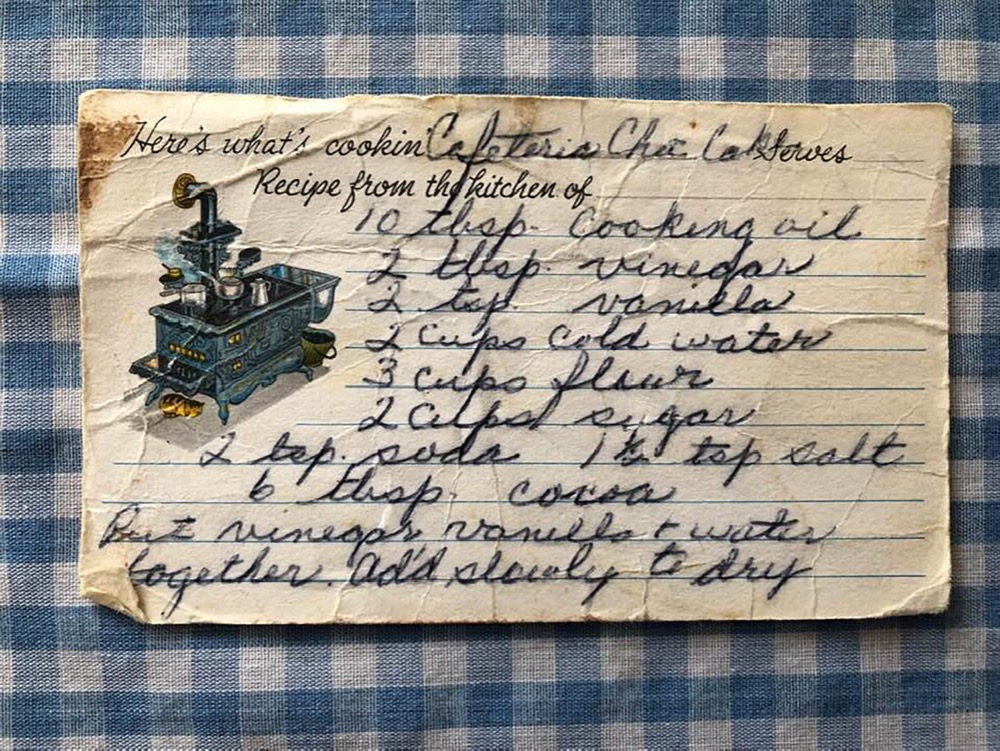 Here's what's cookin' Cafeteria Choc Cake Serves
Recipe from the kitchen of
10 tbsp. Cooking oil
2 tbsp. vinegar
2 tsp. vanilla
2 cups cold water
3 cups flour
2 cups sugar
2 tsp. soda 1½ tsp salt
6 tbsp. cocoa
Put vinegar vanilla + water
together. Add slowly to dry